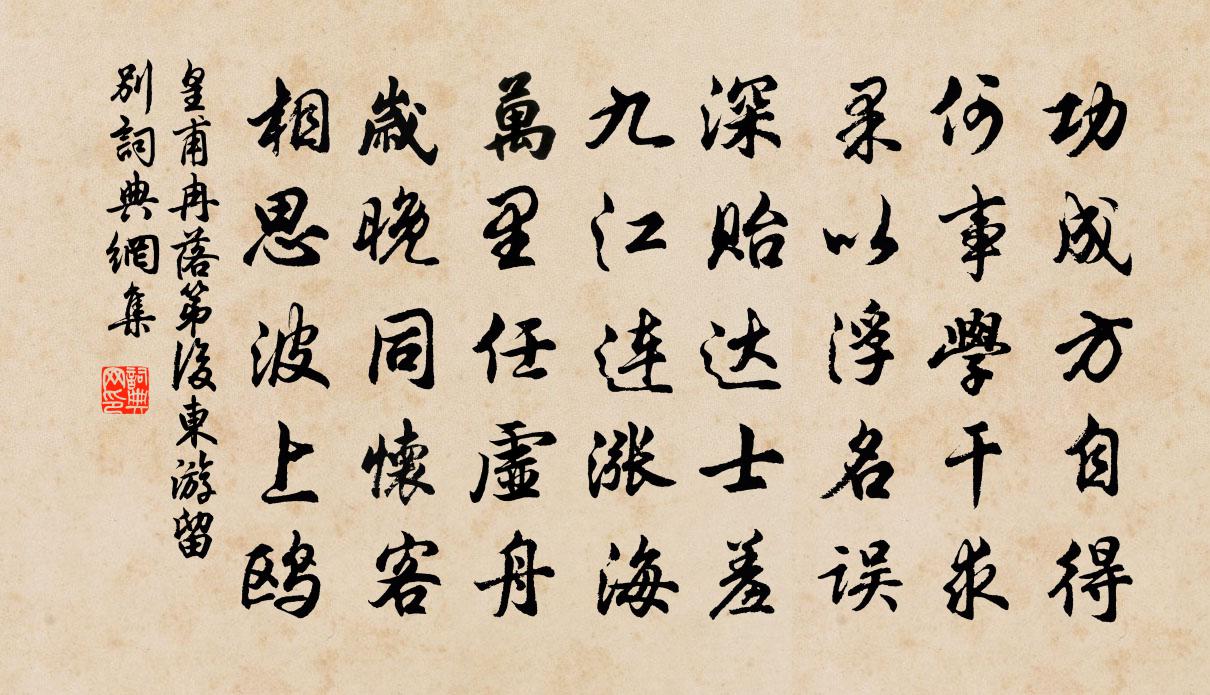 功成方自得
何事學干求
果以浮名误
深貽达士羞
九江連漲海
萬里任虛舟
歲晚同懷客
相思波上鸥
皇甫冉落第後東游留
別詞典網集
詞典网印